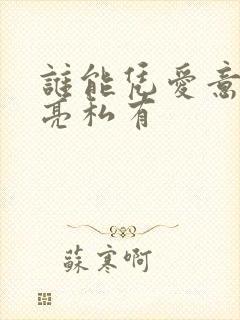 誰能凭愛意
亮私有
蘇寒啊